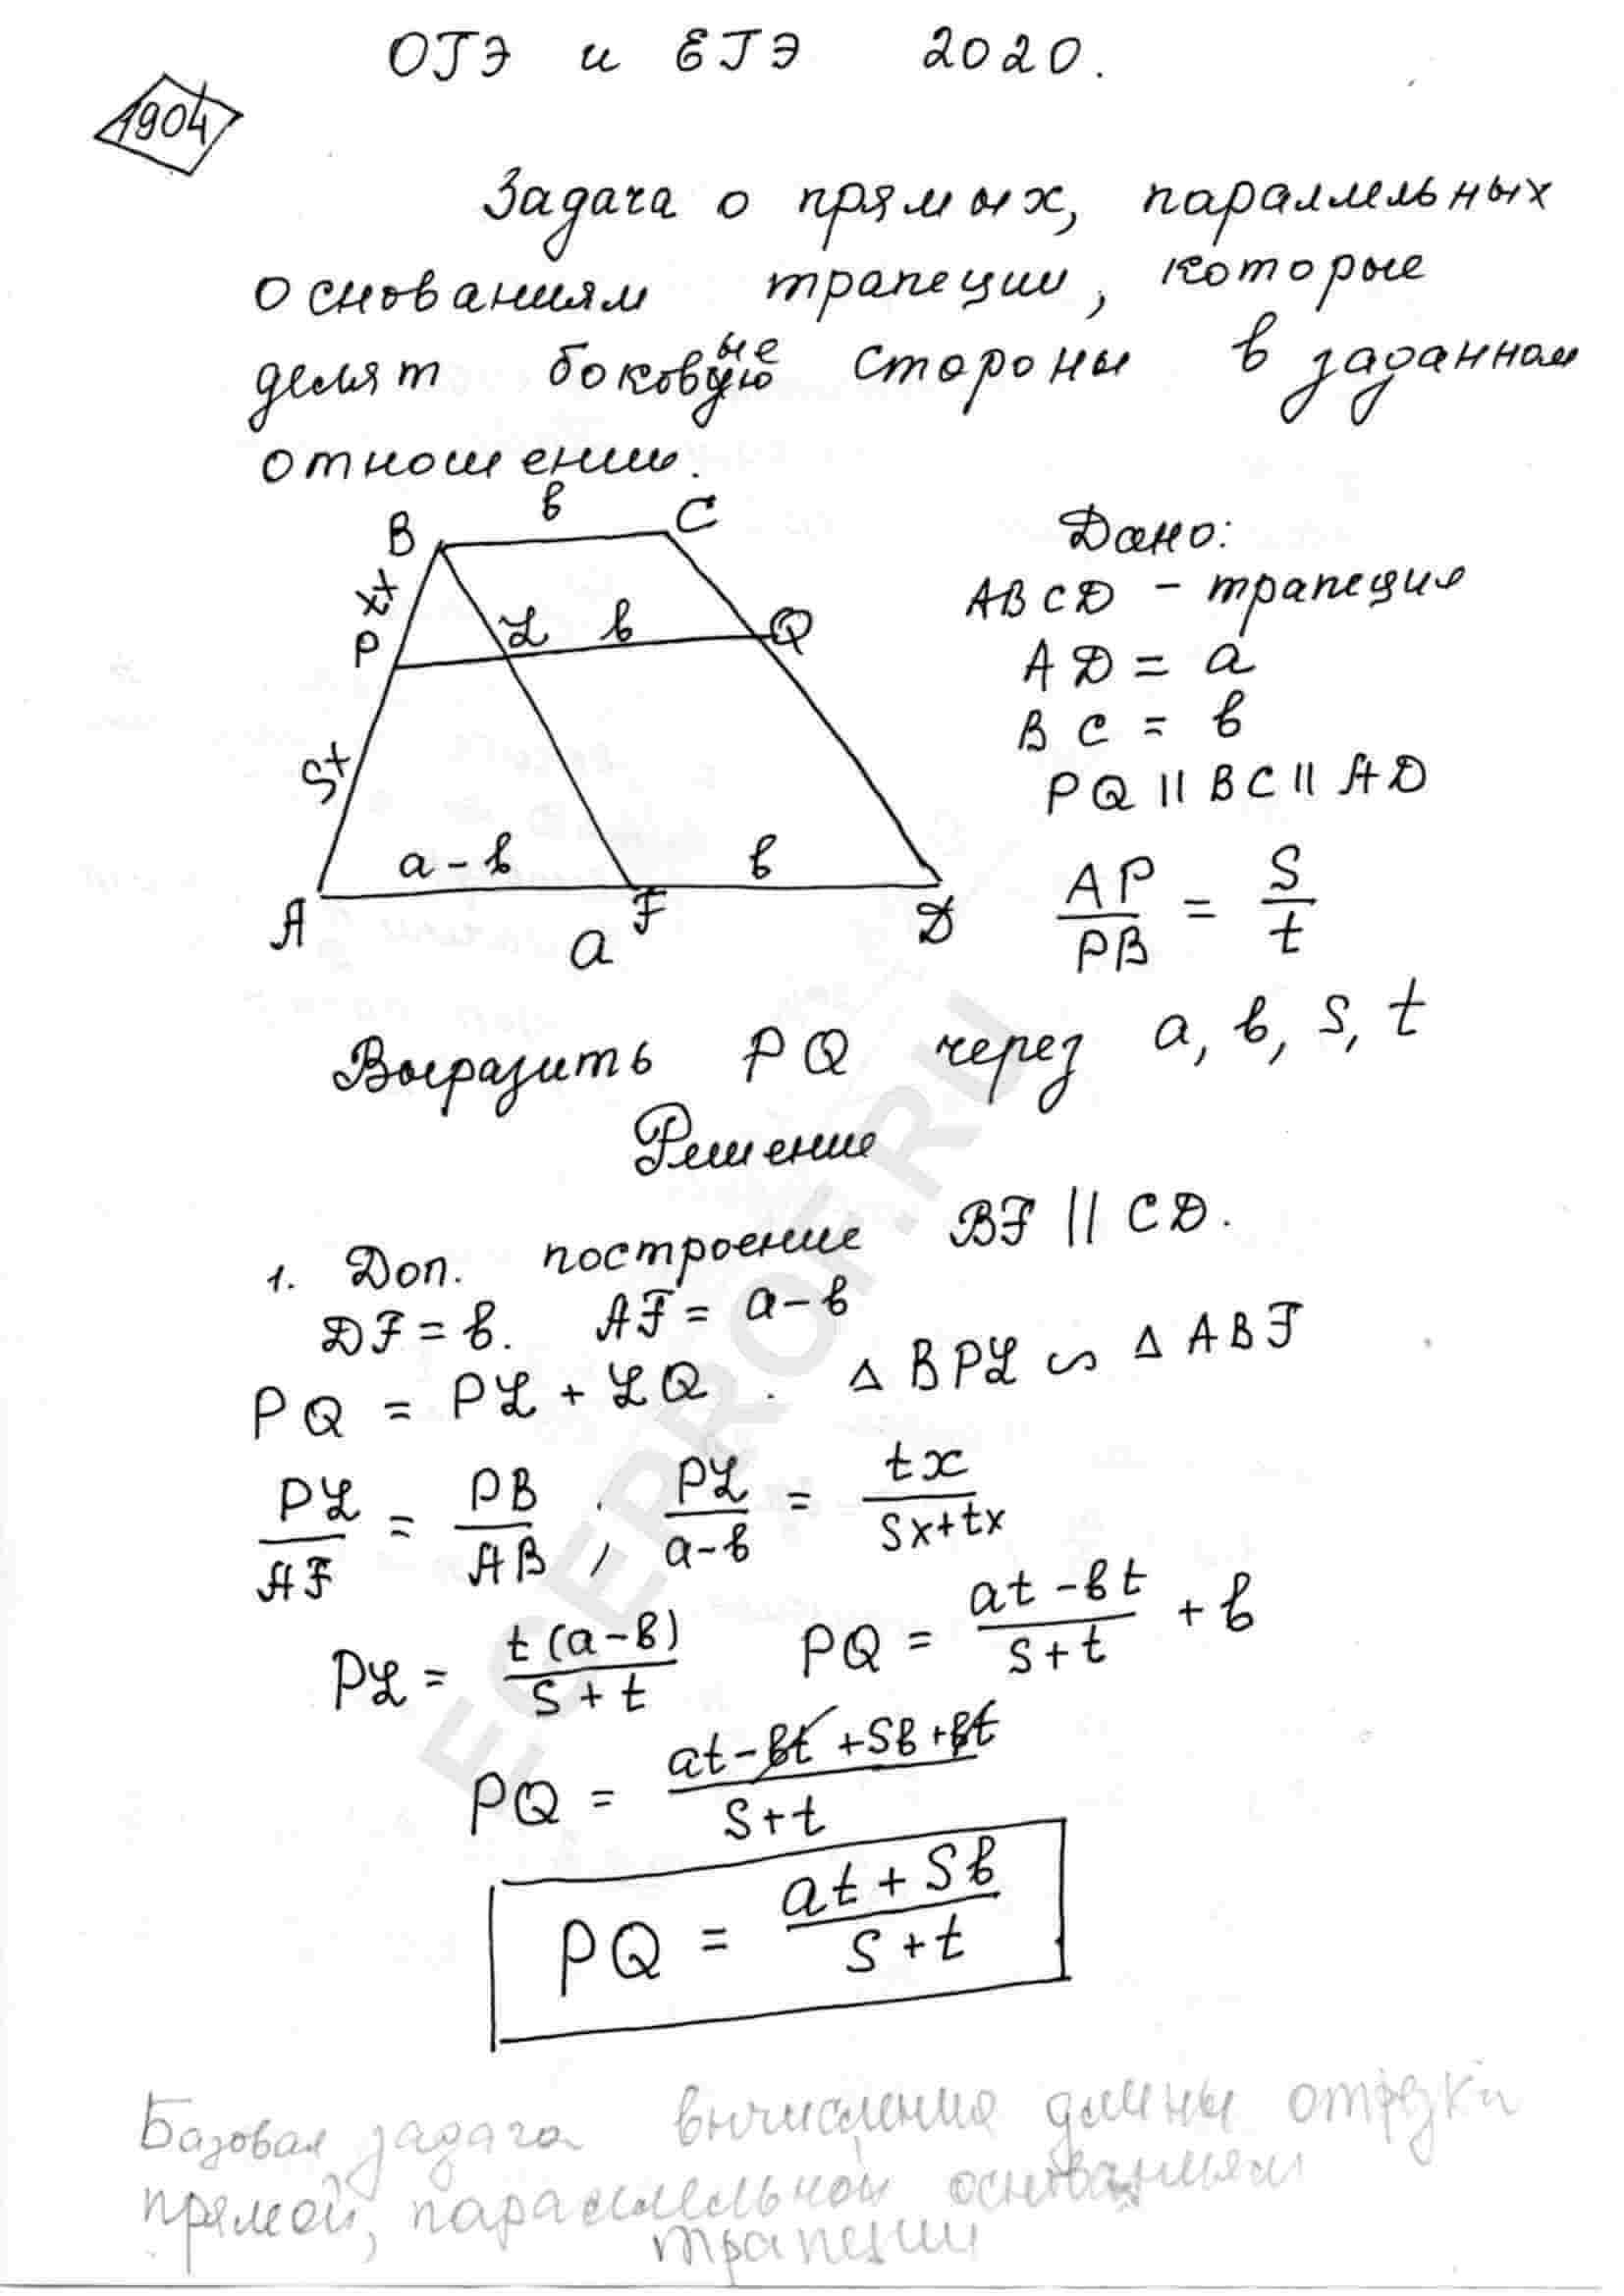 ОГЭ и ЕГЭ 2020.
1904
Задача о прямых, параллельных
основаниям трапеции, которые
делят боковые стороны в заданном
отношении.
B в C
xt
P L в Q
St
a-в в
A F D
a
Дано:
ABCD - трапеция
AD = a
BC = в
PQ || BC || AD
AP/PB = S/t
Выразить PQ через a, в, s, t
Решение
1. Доп. построение BF || CD.
DF = в. AF = a-в
PQ = PL + LQ. △BPL ∽ △ABF
PL/AF = PB/AB ; PL/(a-в) = tx/(Sx+tx)
PL = t(a-в)/(S+t) PQ = (at-вt)/(S+t) + в
PQ = (at-вt+Sв+вt)/(S+t)
PQ = (at+Sв)/(S+t)
Базовая задача вычисления длины отрезка
прямой, параллельной основаниям
трапеции
EGEPROF.RU